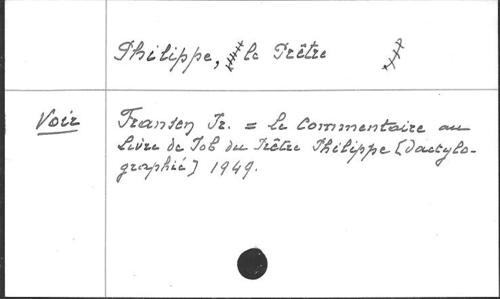 Philippe, le Prêtre
Voir
Fransen Fr. = le Commentaire au
Livre de Job du Prêtre Philippe [Dactylo-
graphié] 1949.